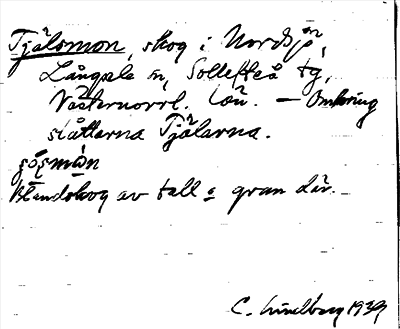 Tjälomon, skog i Nordsjö,
Långsele sn, Sollefteå tg,
Västernorrl. län. — Omkring
slåtterna Tjälarna.
Blandskog av tall o gran där.
C. Lindberg 1939